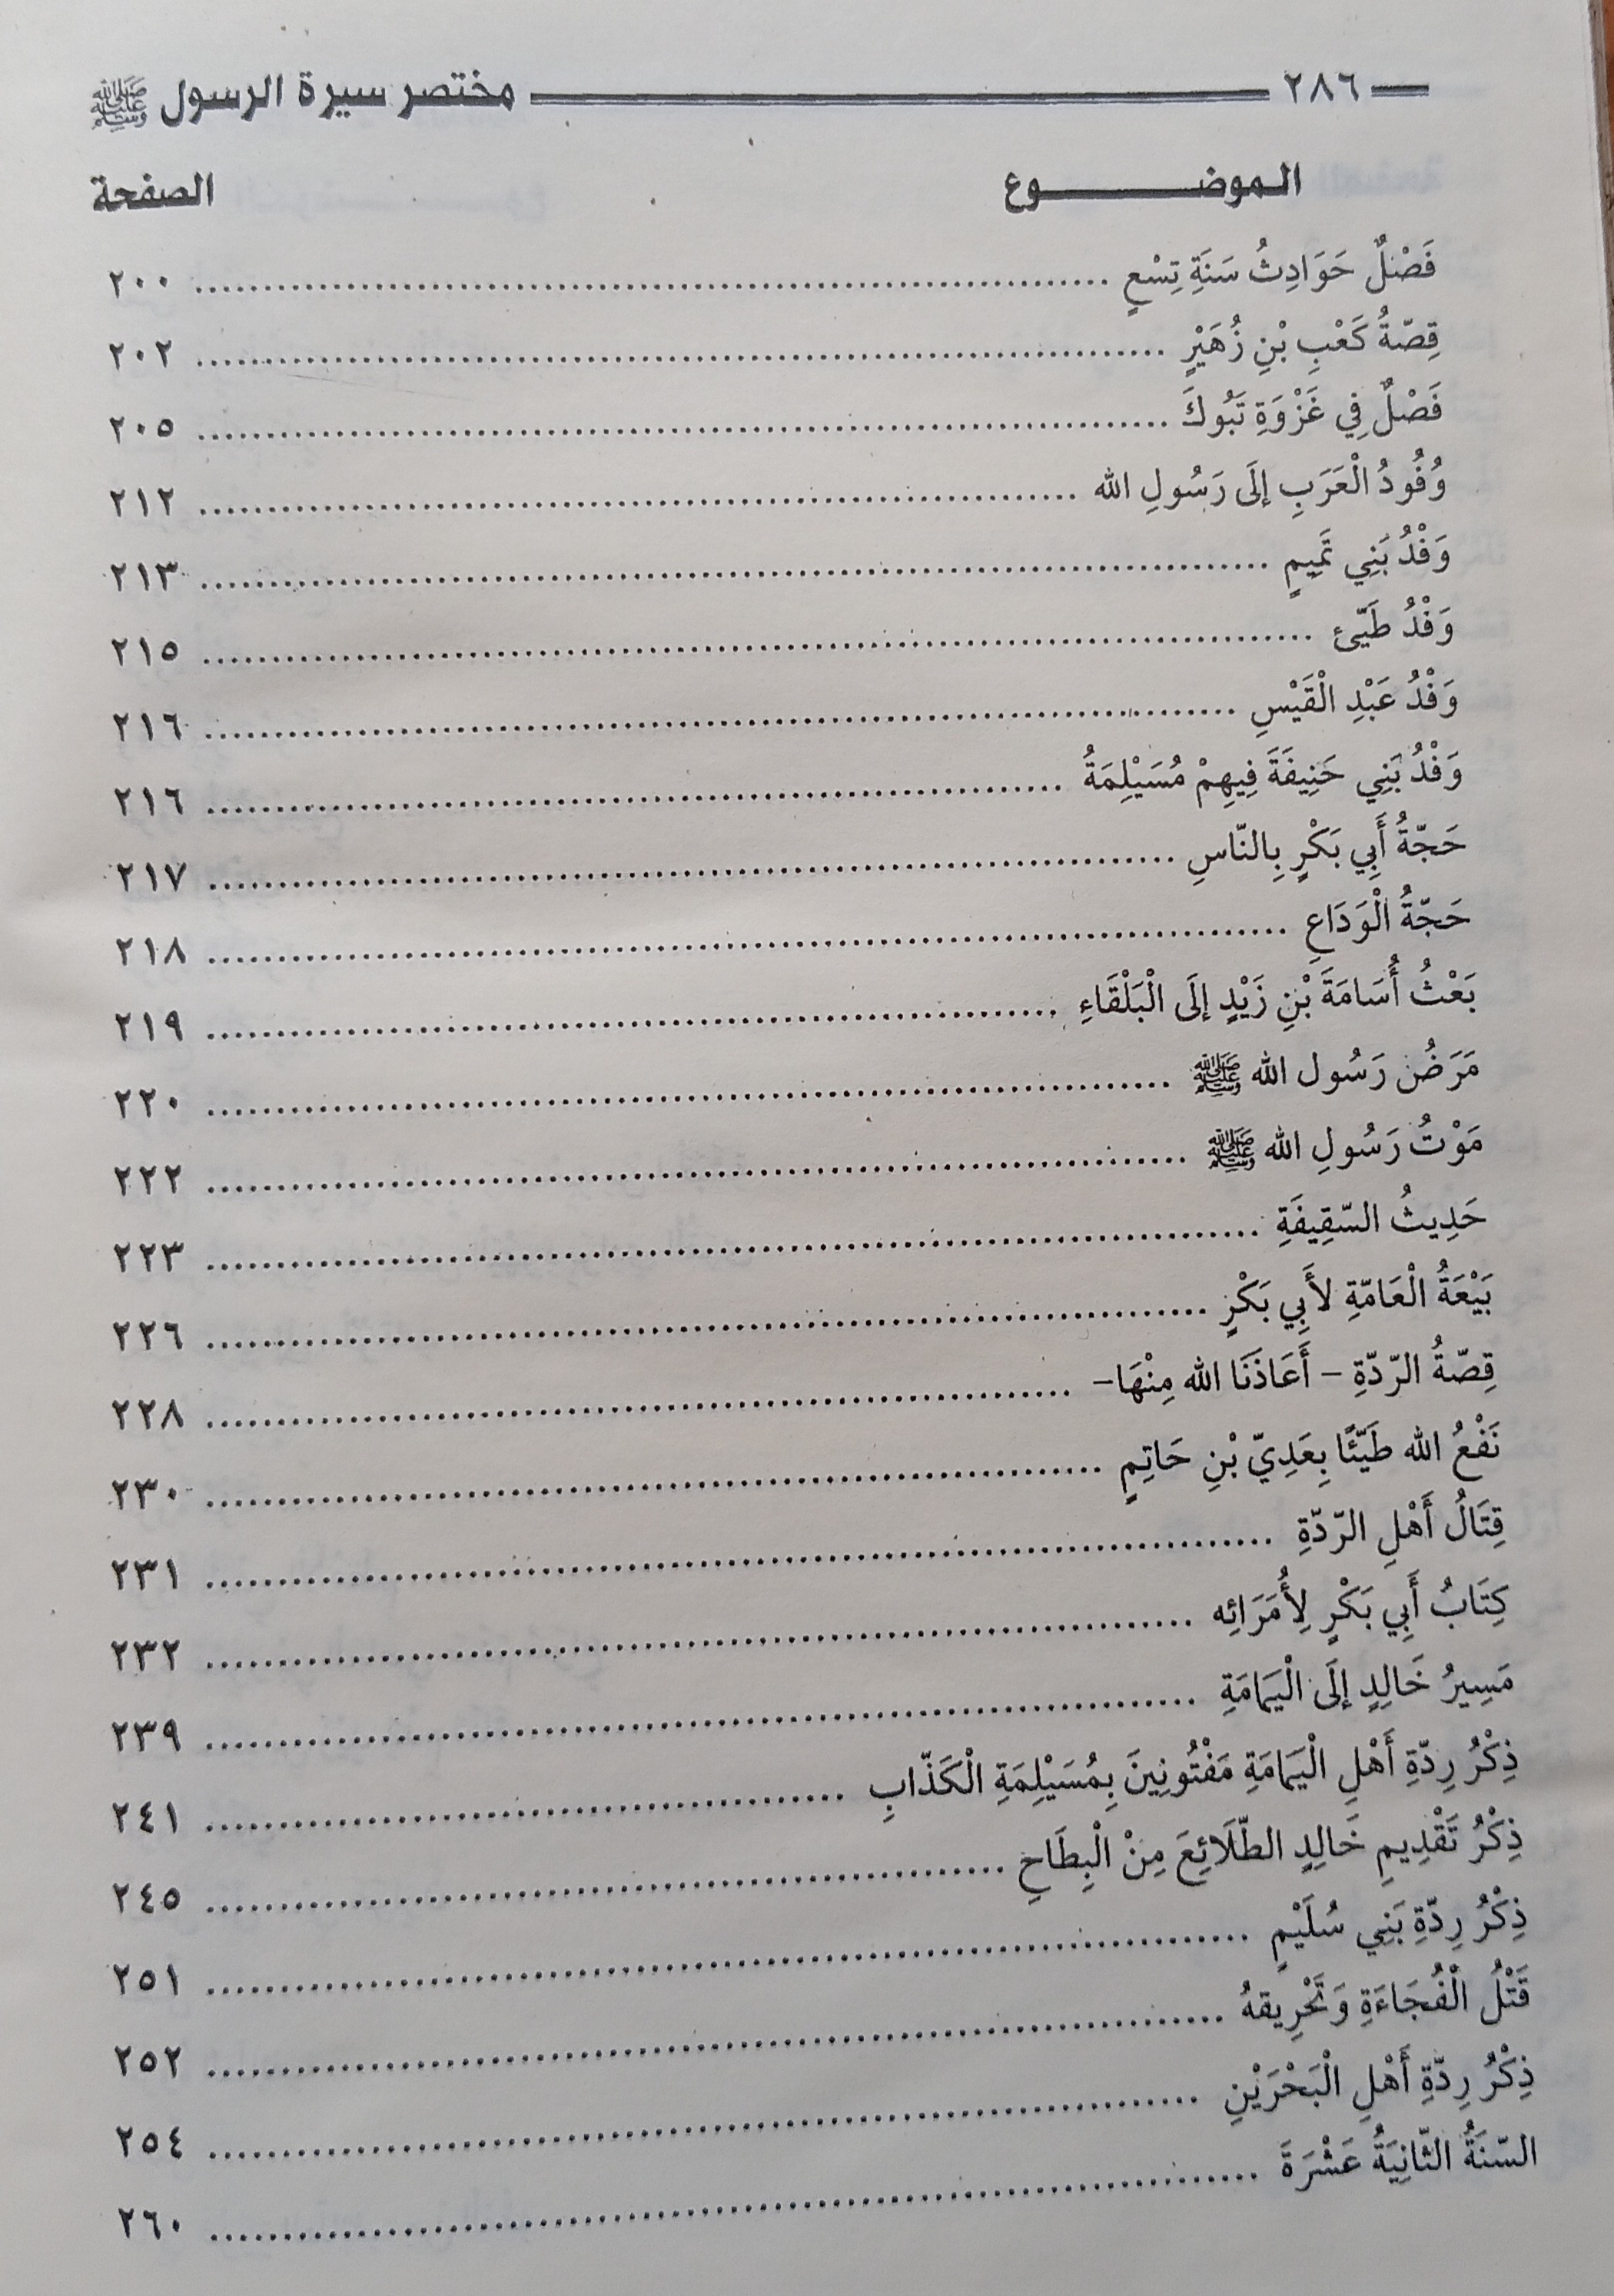 ٢٨٦ مختصر سيرة الرسول ﷺ
الموضـــــــــوع الصفحة
فَصْلٌ حَوَادِثُ سَنَةِ تِسْعٍ ........ ٢٠٠
قِصّةُ كَعْبِ بْنِ زُهَيْرٍ ........ ٢٠٢
فَصْلٌ فِي غَزْوَةِ تَبُوكَ ........ ٢٠٥
وُفُودُ الْعَرَبِ إلَى رَسُولِ الله ........ ٢١٢
وَفْدُ بَنِي تَمِيمٍ ........ ٢١٣
وَفْدُ طَيّئ ........ ٢١٥
وَفْدُ عَبْدِ الْقَيْسِ ........ ٢١٦
وَفْدُ بَنِي حَنِيفَةَ فِيهِمْ مُسَيْلِمَةُ ........ ٢١٦
حَجّةُ أَبِي بَكْرٍ بِالنّاسِ ........ ٢١٧
حَجّةُ الْوَدَاعِ ........ ٢١٨
بَعْثُ أُسَامَةَ بْنِ زَيْدٍ إلَى الْبَلْقَاءِ ........ ٢١٩
مَرَضُ رَسُول الله ﷺ ........ ٢٢٠
مَوْتُ رَسُولِ الله ﷺ ........ ٢٢٢
حَدِيثُ السّقِيفَةِ ........ ٢٢٣
بَيْعَةُ الْعَامّةِ لأَبِي بَكْرٍ ........ ٢٢٦
قِصّةُ الرّدّةِ – أَعَاذَنَا الله مِنْهَا– ........ ٢٢٨
نَفْعُ الله طَيّئًا بِعَدِيّ بْنِ حَاتِمٍ ........ ٢٣٠
قِتَالُ أَهْلِ الرّدّةِ ........ ٢٣١
كِتَابُ أَبِي بَكْرٍ لِأُمَرَائِه ........ ٢٣٢
مَسِيرُ خَالِدٍ إلَى الْيَمَامَةِ ........ ٢٣٩
ذِكْرُ رِدّةِ أَهْلِ الْيَمَامَةِ مَفْتُونِينَ بِمُسَيْلِمَةِ الْكَذّابِ ........ ٢٤١
ذِكْرُ تَقْدِيمِ خَالِدٍ الطّلَائِعَ مِنْ الْبِطَاحِ ........ ٢٤٥
ذِكْرُ رِدّةِ بَنِي سُلَيْمٍ ........ ٢٥١
قَتْلُ الْفُجَاءَةِ وَتَحْرِيقهُ ........ ٢٥٢
ذِكْرُ رِدّةِ أَهْلِ الْبَحْرَيْنِ ........ ٢٥٤
السّنَةُ الثّانِيَةُ عَشْرَةَ ........ ٢٦٠